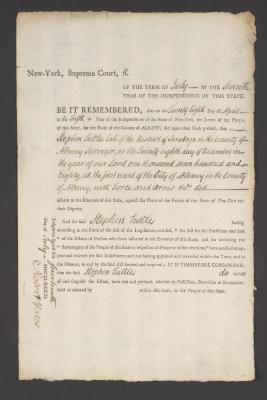 New-York, Supreme Court, ss.
OF THE TERM OF July IN THE Seventh
YEAR OF THE INDEPENDENCE OF THIS STATE.
BE IT REMEMBERED, that on the Twenty Eighth Day of April
in the Fifth Year of the Independence of the State of New-York, the Jurors of the People
of this State, for the Body of the County of ALBANY, did upon their Oath present, that
Stephen Tuttle late of the District of Saratoga in the County of
Albany Surveyor, on the Twenty eighth day of December in
the year of our Lord one thousand seven hundred and
Eighty, at the first ward of the City of Albany in the County
of Albany, with Force and Arms &c. did
adhere to the Enemies of this State, against the Peace of the People of the State of New-York and
their Dignity:
And the said Stephen Tuttle having
according to the Form of the Act of the Legislature, entitled, "An Act for the Forfeiture and Sale
"of the Estates of Persons who have adhered to the Enemies of this State, and for declaring the
"Sovereignty of the People of this State in respect to all Property within the same," been notified to appear and traverse the said Indictment, and not having appeared and traversed within the Time, and in
the Manner, in and by the said Act limited and required; IT IS THEREFORE CONSIDERED,
that the said Stephen Tuttle do forfeit
all and singular the Estates, both real and personal, whether in Possession, Reversion or Remainder,
held or claimed by within this State, to the People of this State.
Judgment signed this fourteenth
Day of July MDCCLXXXIII.
Robert Yates